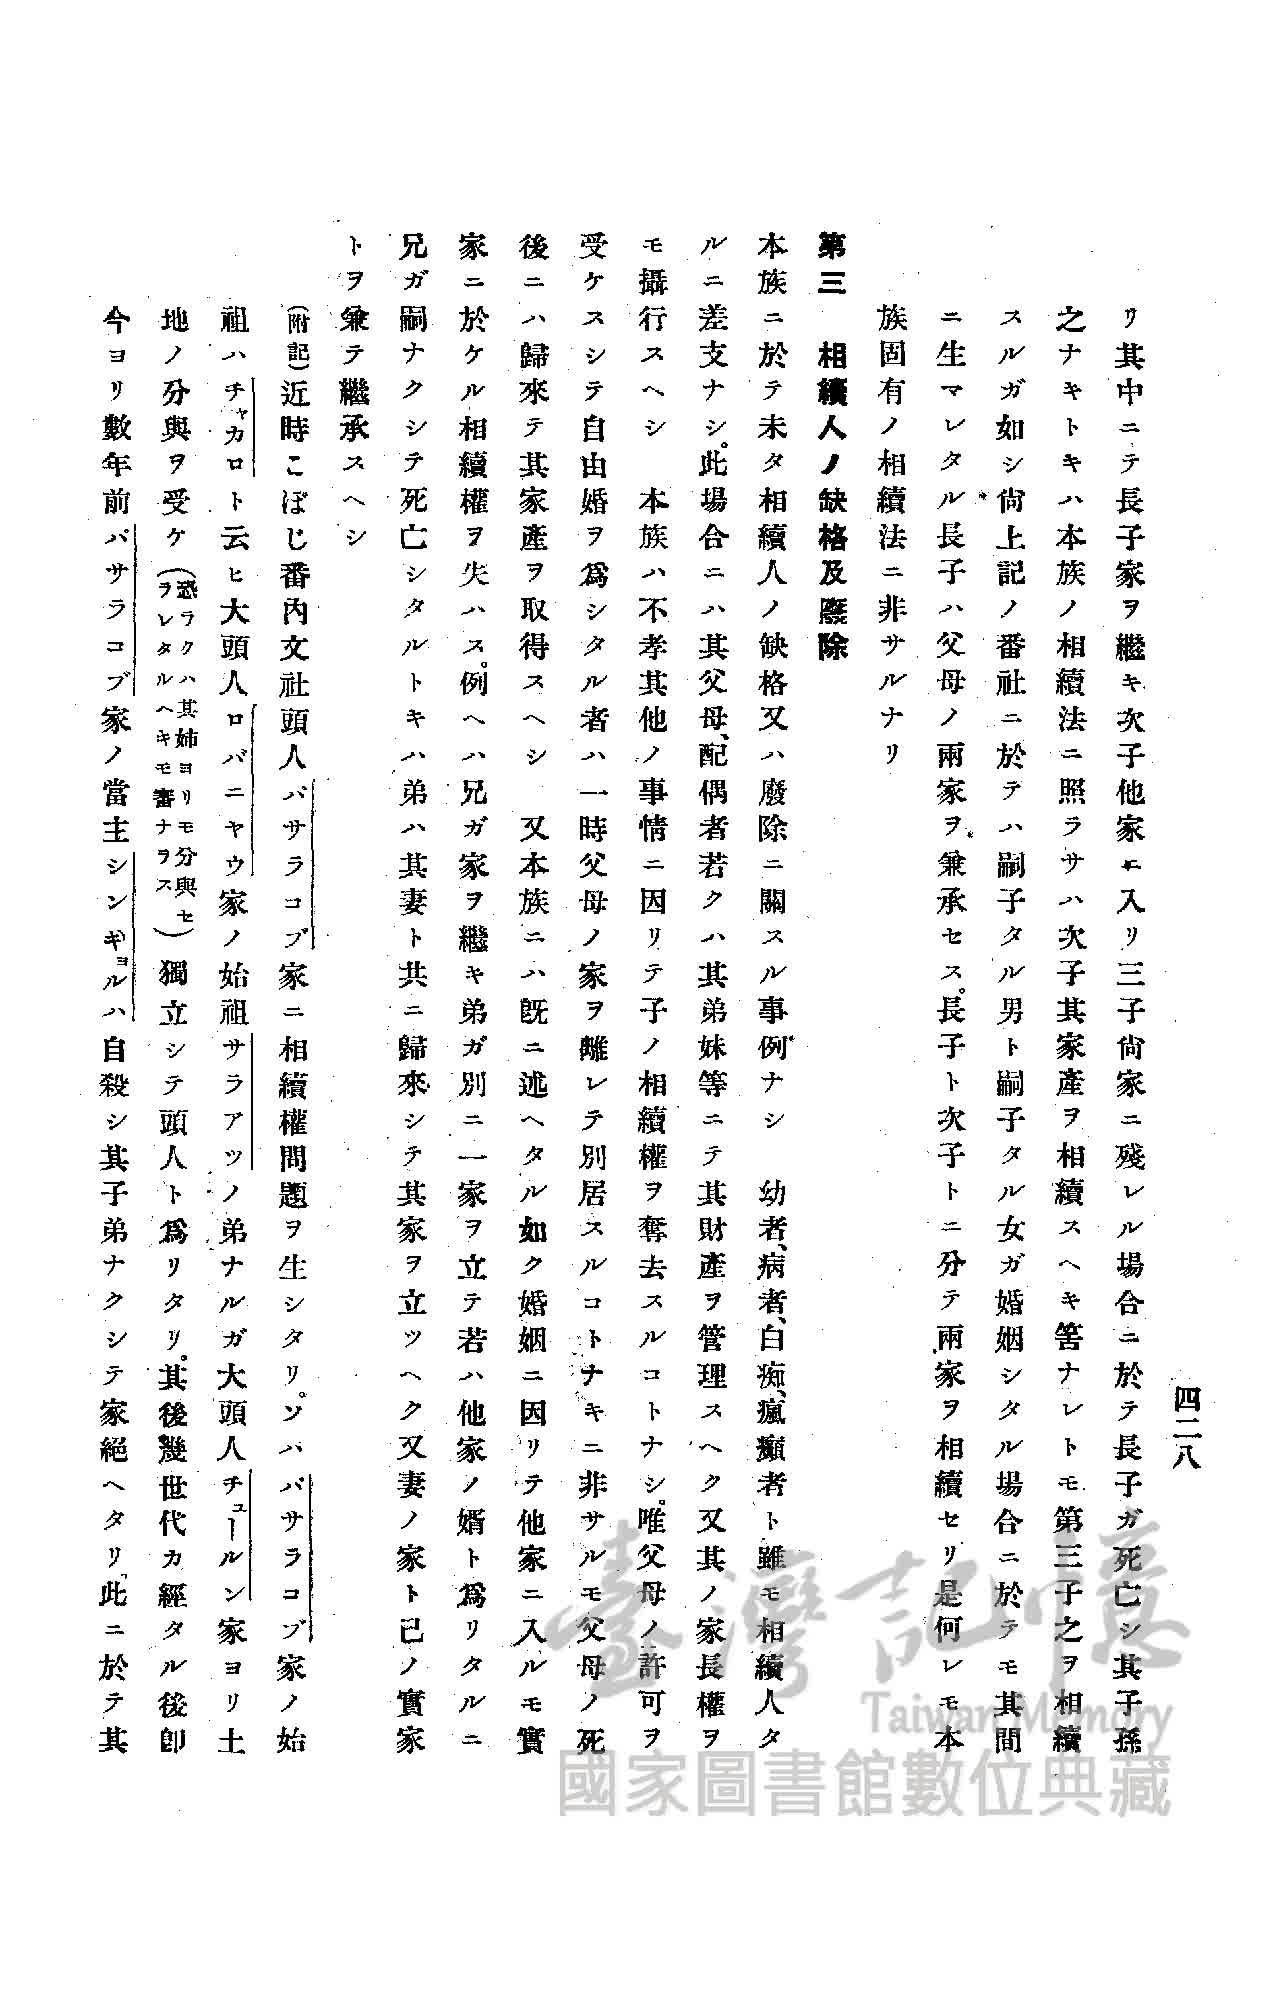 四二八
リ其中ニテ長子家ヲ繼キ次子他家ニ入リ三子尙家ニ殘レル場合ニ於テ長子ガ死亡シ其子孫
之ナキトキハ本族ノ相續法ニ照ラサハ次子其家產ヲ相續スヘキ筈ナレトモ第三子之ヲ相續
スルガ如シ尙上記ノ番社ニ於テハ嗣子タル男ト嗣子タル女ガ婚姻シタル場合ニ於テモ其間
ニ生マレタル長子ハ父母ノ兩家ヲ兼承セス。長子ト次子トニ分テ兩家ヲ相續セリ是何レモ本
族固有ノ相續法ニ非サルナリ
第三　相續人ノ缺格及廢除
本族ニ於テ未タ相續人ノ缺格又ハ廢除ニ關スル事例ナシ　幼者、病者、白痴、瘋癲者ト雖モ相續人タ
ルニ差支ナシ。此場合ニハ其父母、配偶者若クハ其弟妹等ニテ其財產ヲ管理スヘク又其ノ家長權ヲ
モ攝行スヘシ　本族ハ不孝其他ノ事情ニ因リテ子ノ相續權ヲ奪去スルコトナシ。唯父母ノ許可ヲ
受ケスシテ自由婚ヲ爲シタル者ハ一時父母ノ家ヲ離レテ別居スルコトナキニ非サルモ父母ノ死
後ニハ歸來テ其家產ヲ取得スヘシ　又本族ニハ旣ニ述ヘタル如ク婚姻ニ因リテ他家ニ入ルモ實
家ニ於ケル相續權ヲ失ハス。例ヘハ兄ガ家ヲ繼キ弟ガ別ニ一家ヲ立テ若ハ他家ノ婿ト爲リタルニ
兄ガ嗣ナクシテ死亡シタルトキハ弟ハ其妻ト共ニ歸來シテ其家ヲ立ツヘク又妻ノ家ト己ノ實家
トヲ兼テ繼承スヘシ
(附記)近時こぼじ番內文社頭人バサラコブ家ニ相續權問題ヲ生シタリ。ソハバサラコブ家ノ始
祖ハチャカロト云ヒ大頭人ロバニヤウ家ノ始祖サラアツノ弟ナルガ大頭人チュールン家ヨリ土
地ノ分與ヲ受ケ(恐ラクハ其姉ヨリモ分與セヲレタルヘキモ審ナヲス)獨立シテ頭人ト爲リタリ。其後幾世代カ經タル後卽
今ヨリ數年前バサラコブ家ノ當主シンギョルハ自殺シ其子弟ナクシテ家絕ヘタリ此ニ於テ其
臺灣記憶
Taiwan Memory
國家圖書館數位典藏